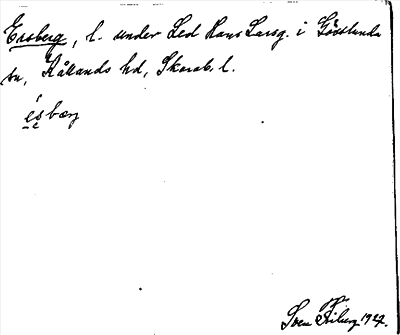 Ersberg, l. under Led Hans Larsg. i Göslunda
sn, Kållands hd, Skarab. l.
esbærj
Sven Friberg 1927.